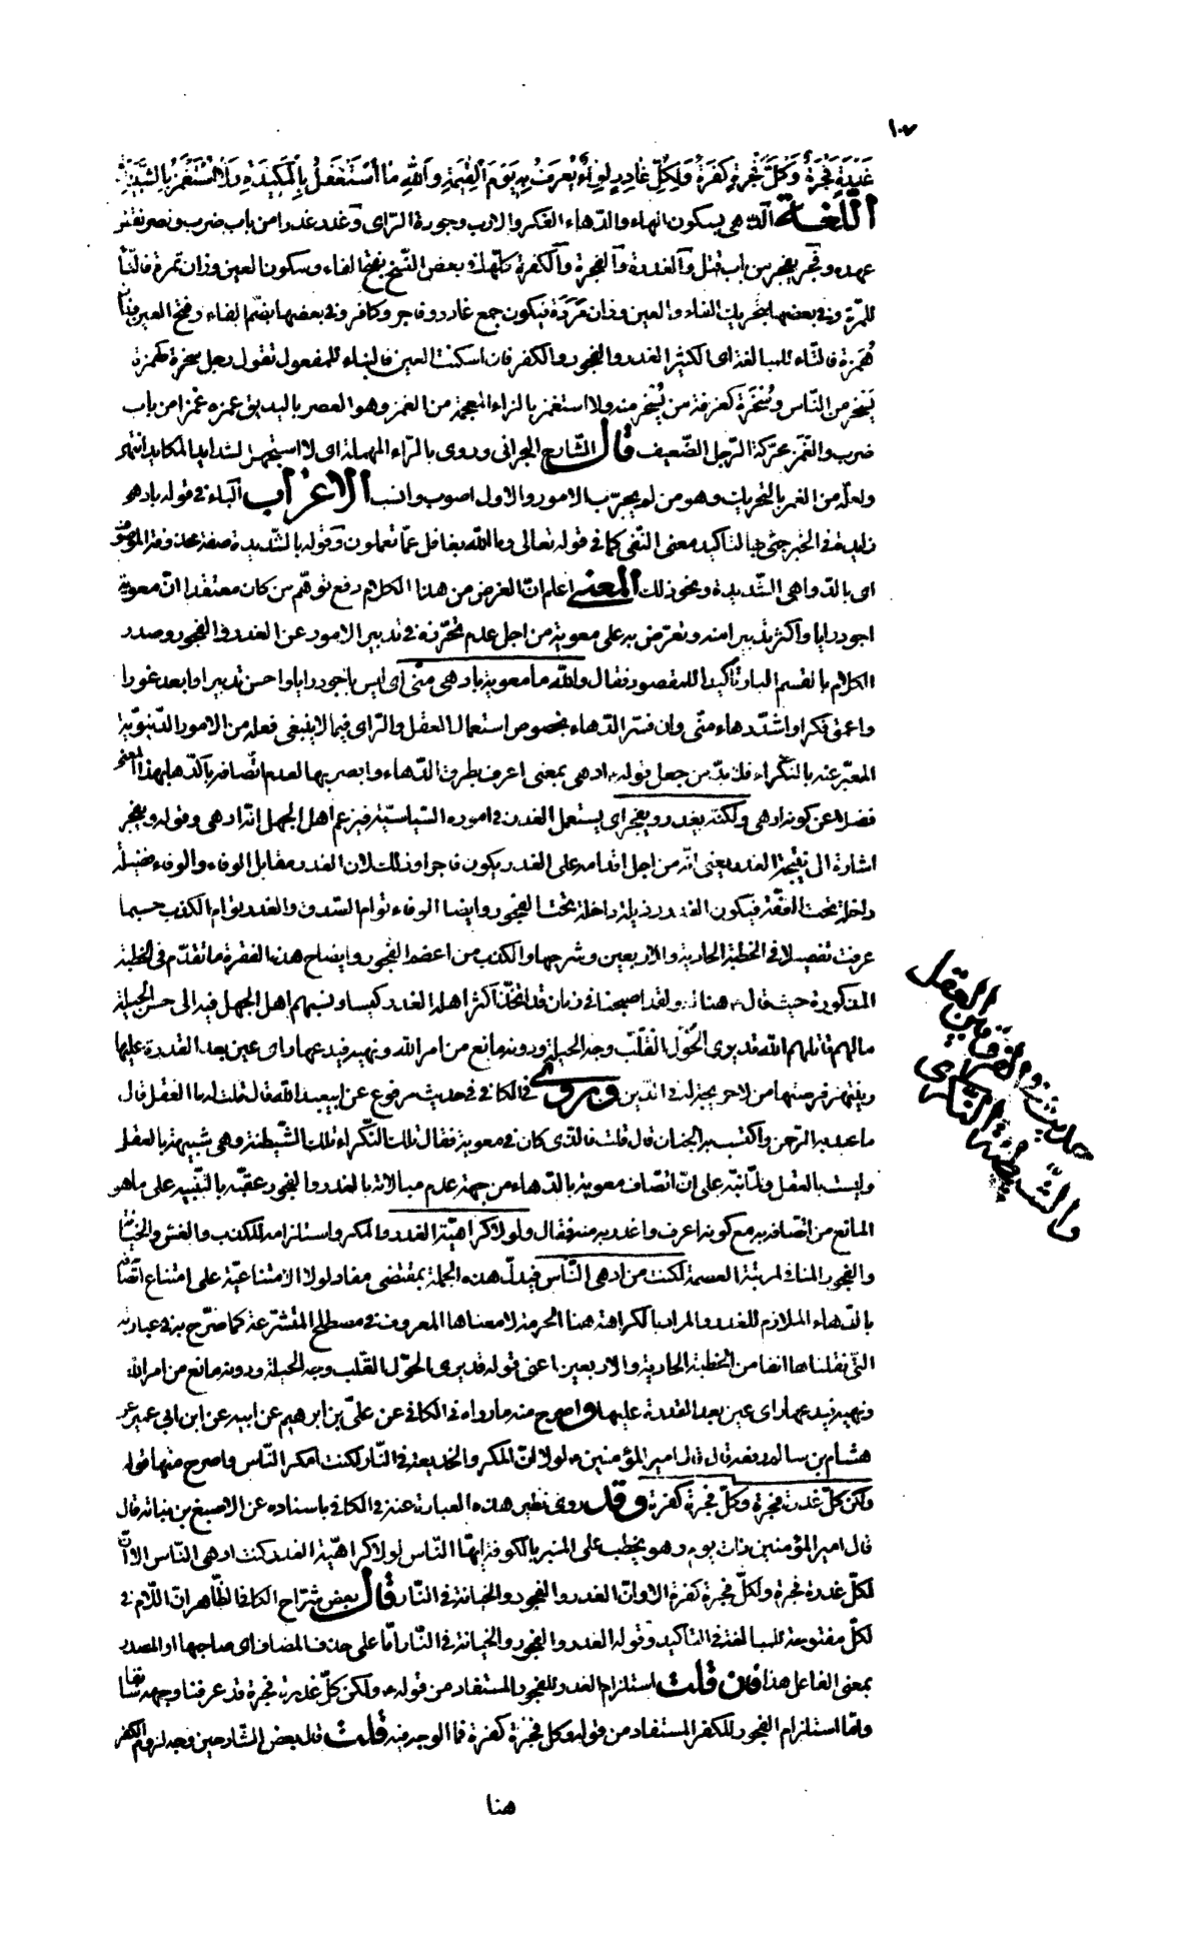 ١٠٧
غَدْرَةٍ فُجْرَةٌ وَكُلُّ فُجْرَةٍ كُفْرَةٌ وَلِكُلِّ غَادِرٍ لِوَاءٌ يُعْرَفُ بِهِ يَوْمَ الْقِيٰمَةِ وَاللّٰهِ مَا أُسْتَغْفَلُ بِالْمَكِيدَةِ وَلَا أُسْتَغْمَزُ بِالشَّدِيدَةِ
اللّغة الدّهى بسكون الهاء والدّهاء الفكر والارب وجودة الرّاى وغدر غدرا من باب ضرب ونصر نقض
عهده وفجر يفجر من باب قتل والغدرة والفجرة والكفرة كلّها فى بعض النّسخ بفتح الفاء وسكون العين وزان تمرة فالتّاء
للمرّة وفى بعضها بتحريك الفاء والعين وزان مَرَدَة فيكون جمع غادر وفاجر وكافر وفى بعضها بضمّ الفاء وفتح العين وزان
هُمَزة فالتّاء للمبالغة اى الكثير الغدر والفجور والكفر فان اسكنت العين فالبناء للمفعول تقول رجل سخرة كهمزة
يَسْخر من النّاس وسُخْرَة كغرفة من يُسْخر منه ولا استغمز بالزاء المعجمة من الغمز وهو العصر باليد يق غمزه غمزا من باب
ضرب والغَمَز محرّكة الرّجل الضّعيف قال الشّارح البحرانى وروى بالرّاء المهملة اى لا استجهل لشدايد المكايد انتهى
ولعلّه من الغمر بالتحريك وهو من لم يجرّب الامور والاول اصوب وانسب الاعراب الباء فى قوله بادهى
زايدة فى الخبر جئ بها لتاكيد معنى النّفى كما فى قوله تعالى وما اللّه بغافل عمّا تعملون وقوله بالشّديدة صفة محذوفة الموصوف
اى بالدّواهى الشّديدة ونحو ذلك المعنى اعلم انّ الغرض من هذا الكلام دفع توهّم من كان معتقدا انّ معوية
اجود رايا واكثر تدبيرا منه وتعرّض به على معوية من اجل عدم تحرّزه فى تدبير الامور عن الغدر والفجور وصدر
الكلام بالقسم البارّ تاكيدا للمقصود فقال واللّه ما معوية بادهى منّى اى ليس باجود رايا واحسن تدبيرا وابعد غورا
واعمق فكرا واشدّ دهاء منّى وان فسّر الدّهاء بخصوص استعمال العقل والرّاى فيما لا ينبغى فعله من الامور الدّنيويّة
المعبّر عنه بالنّكراء فلا بدّ من جعل قوله بادهى بمعنى اعرف بطرق الدّهاء وابصر بها لعدم اتّصافه بالدّها بهذا المعنى
فضلا عن كونه ادهى ولكنّه يغدر ويفجر اى يستعمل الغدر فى اموره السّياسيّة فيزعم اهل الجهل انّه ادهى وقوله ويفجر
اشارة الى نتيجة الغدر يعنى انّه من اجل اقدامه على الغدر يكون فاجرا وذلك لان الغدر مقابل الوفاء والوفاء فضيلة
داخلة تحت العفّة فيكون الغدر رذيلة داخلة تحت الفجور وايضا الوفاء توام الصّدق والغدر توام الكذب حسبما
عرفت تفصيلا فى الخطبة الحادية والاربعين وشرحها والكذب من اعظم الفجور وايضاح هذه الفقرة ما تقدّم فى الخطبة
المذكورة حيث قال هناك ولقد اصبحنا فى زمان قد اتّخذ اكثر اهله الغدر كيسا ونسبهم اهل الجهل فيه الى حسن الحيلة
ما لهم قاتلهم اللّه قد يرى الحُوّل القُلّب وجه الحيلة ودونه مانع من امر اللّه ونهيه فيدعها راى عين بعد القدرة عليها
وينتهز فرصتها من لا حريجة له فى الدّين وروى فى الكافى فى حديث مرفوع عن ابيعبد اللّه قال قلت له ما العقل قال
ما عبد به الرّحمن واكتسب به الجنان قال قلت فالّذى كان فى معوية فقال تلك النّكراء تلك الشّيطنة وهى شبيهة بالعقل
وليست بالعقل ولمّا نبّه على انّ اتّصاف معوية بالدّهاء من جهة عدم مبالاته بالغدر والفجور عقبّه بالتّنبيه على ما هو
المانع من اتّصافه به مع كونه اعرف واغدر به منه فقال ولولا كراهيّة الغدر والمكر واستلزامه للكذب والغش والخيانة
والفجور المنافى لمرتبة العصمة لكنت من ادهى النّاس فيدلّ هذه الجملة بمقتضى مفاد لولا الامتناعيّة على امتناع اتّصافه
بالدّهاء الملازم للغدر والمراد بالكراهة هنا الحرمة لا معناها المعروف فى مصطلح المتشرّعة كما صرّح به فى عبارته
الّتى نقلناها انفا من الخطبة الحادية والاربعين اعنى قوله قد يرى الحوّل القّلب وجه الحيلة ودونه مانع من امر اللّه
ونهيه فيدعها راى عين بعد القدرة عليها واصرح منه ما رواه فى الكافى عن علىّ بن ابرهيم عن ابيه عن ابن ابى عمير عن
هشام بن سالم رفعه قال قال امير المؤمنين لولا انّ المكر والخديعة فى النّار لكنت امكر النّاس واصرح منها قوله
ولكن كلّ غدرة فجرة وكلّ فجرة كفرة وقد روى نظير هذه العبارة عنه فى الكافى باسناده عن الاصبغ بن نباتة قال
قال امير المؤمنين ذات يوم وهو يخطب على المنبر بالكوفة ايّها النّاس لولا كراهيّة الغدر كنت ادهى النّاس الا انّ
لكلّ غدرة فجرة ولكلّ فجرة كفرة الا وانّ الغدر والفجور والخيانة فى النّار قال بعض شرّاح الكافى الظّاهر انّ اللّام فى
لكلّ مفتوحة للمبالغة فى التاكيد وقوله الغدر والفجور والخيانة فى النّار امّا على حذف المضاف اى صاحبها او المصدر
بمعنى الفاعل هذا فان قلت استلزام الغدر للفجور المستفاد من قوله ولكن كلّ غدرة فجرة قد عرفنا وجهه سابقا
وامّا استلزام الفجور للكفر المستفاد من قوله وكل فجرة كفرة فما الوجه فيه قلت قال بعض الشّارحين وجه لزوم الكفر
هنا
حديث والفرق بين العقل
والشّيطنة النّكرى